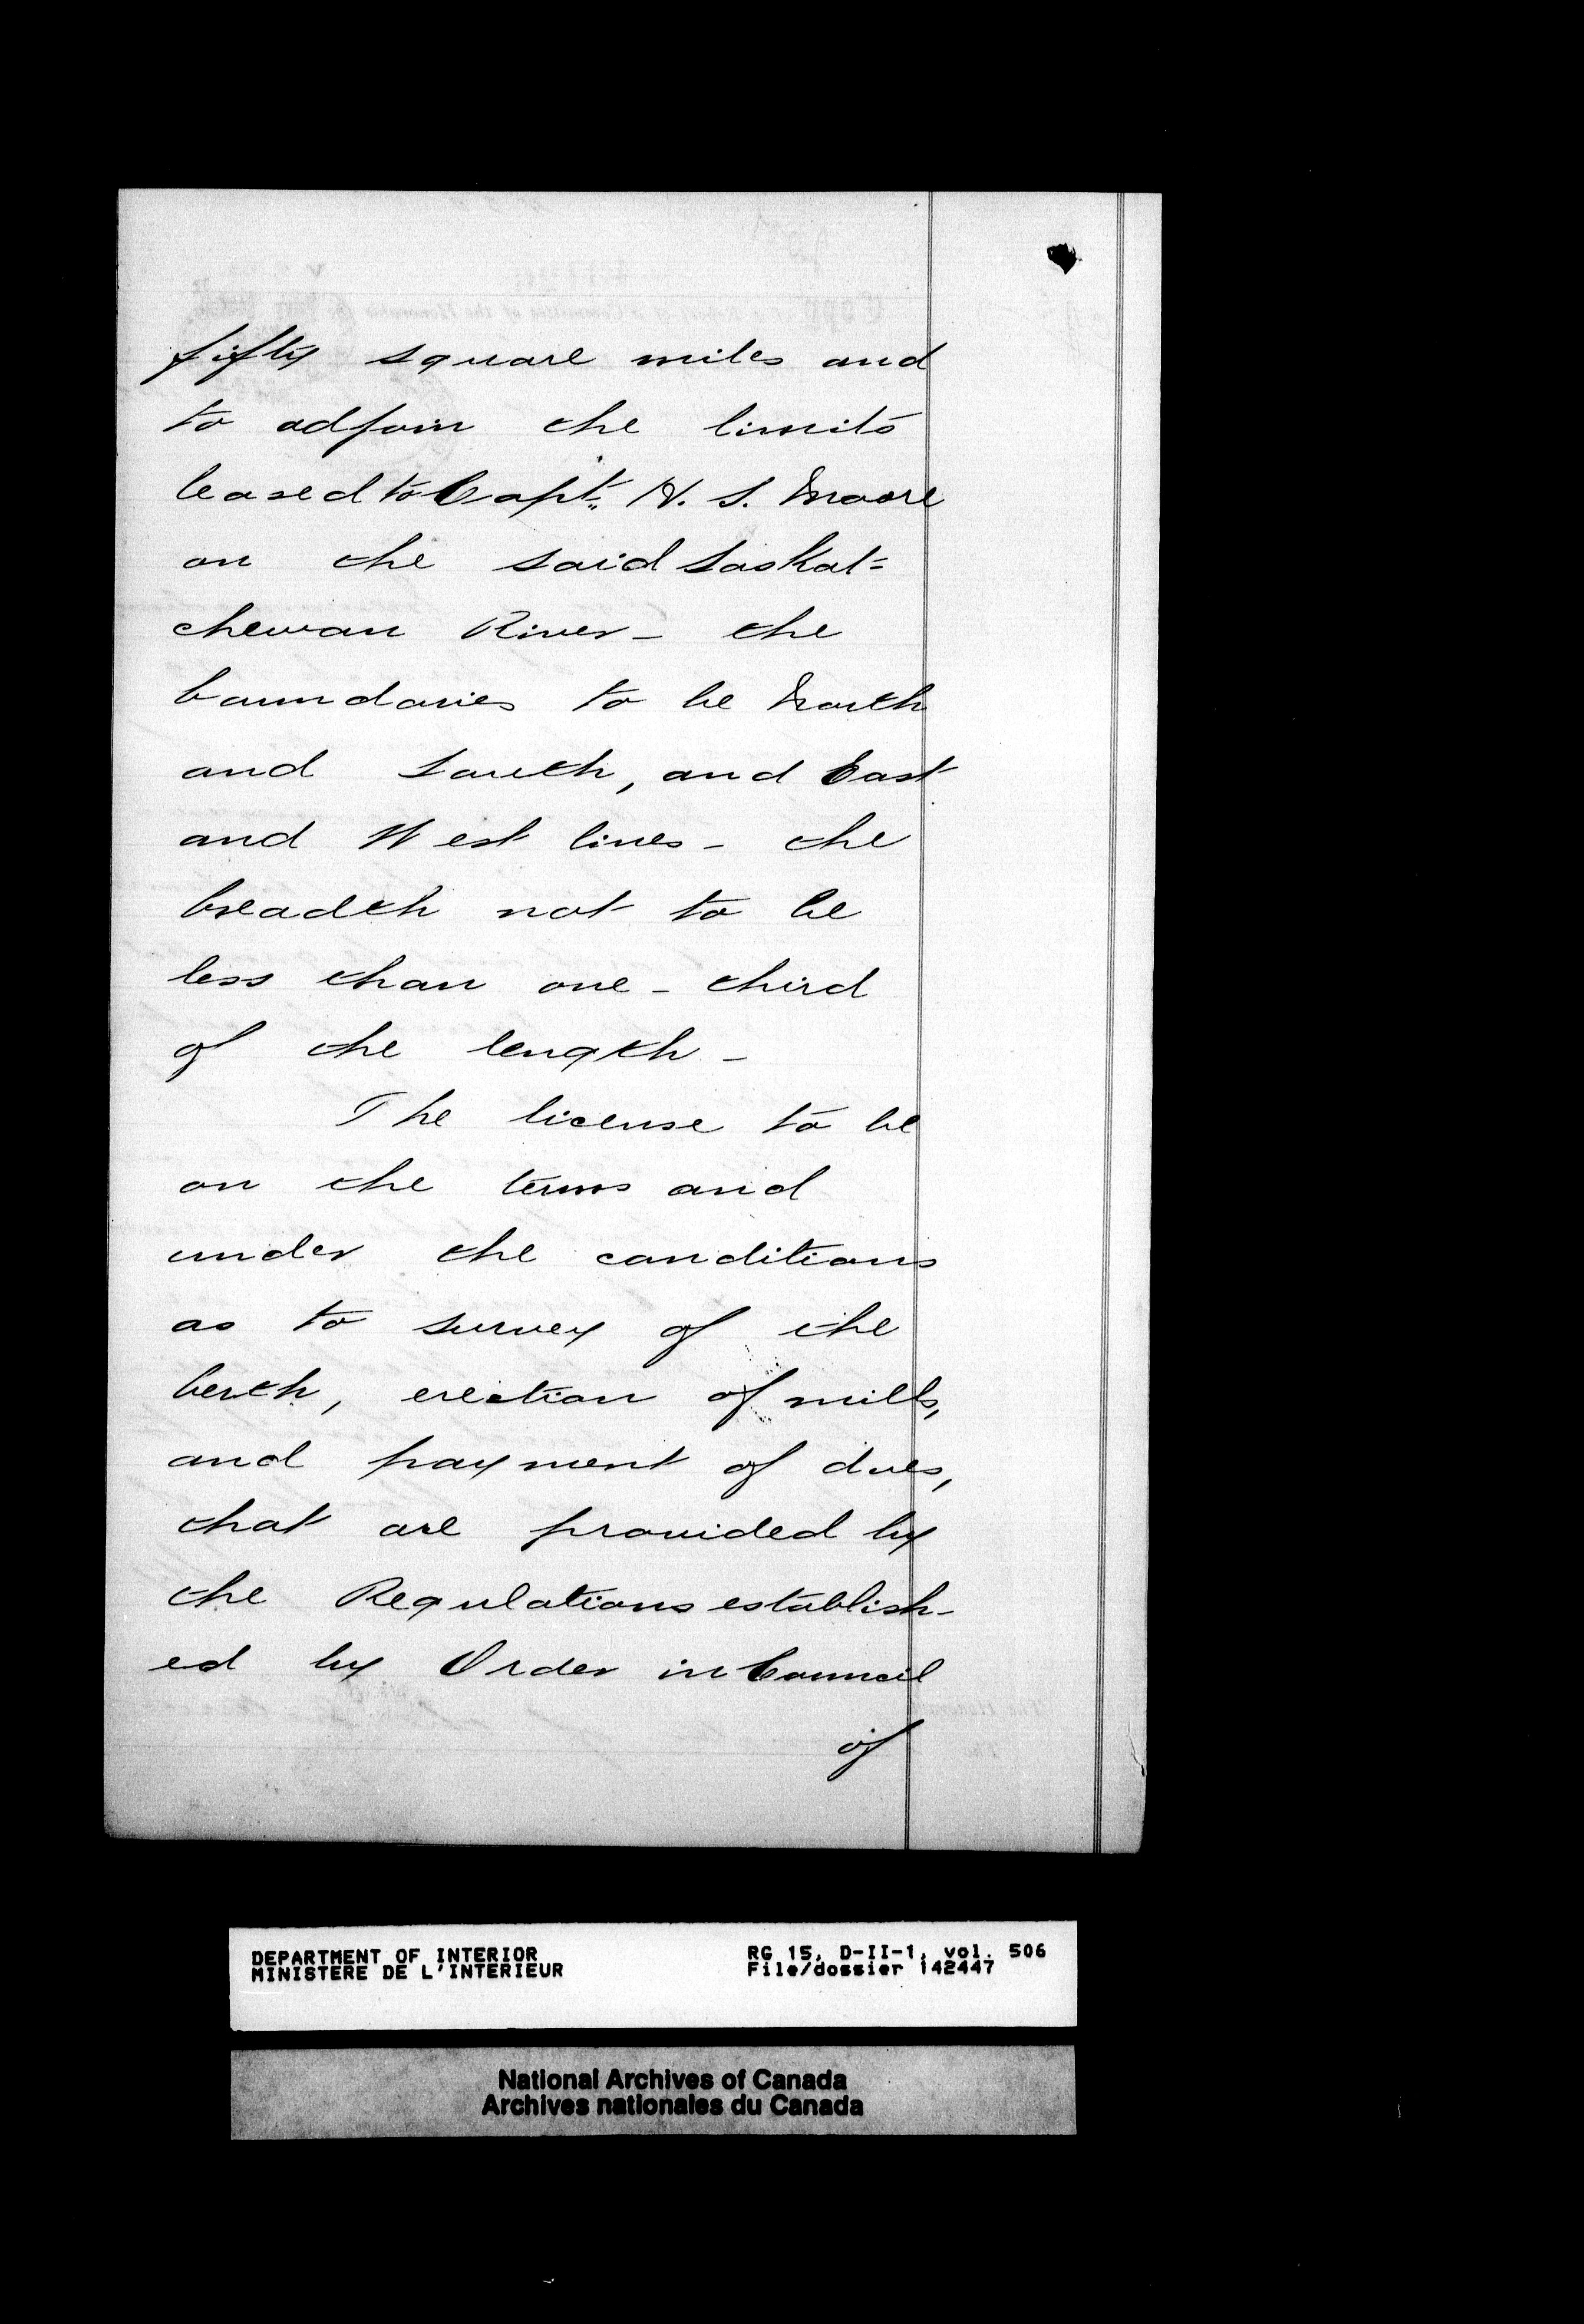 fifty square miles and
to adjoin the limits
leased to Capt. H. S. Moore
on the said Saskat=
chewan River - the
boundaries to be North
and South, and East
and West lines - the
breadth not to be
less than one-third
of the length -
The license to be
on the terms and
under the conditions
as to survey of the
berth, erection of mills,
and payment of dues,
that are provided by
the Regulations establish-
ed by Order in Council
of
DEPARTMENT OF INTERIOR RG 15, D-II-1, vol. 506
MINISTERE DE L'INTERIEUR File/dossier 142447
National Archives of Canada
Archives nationales du Canada